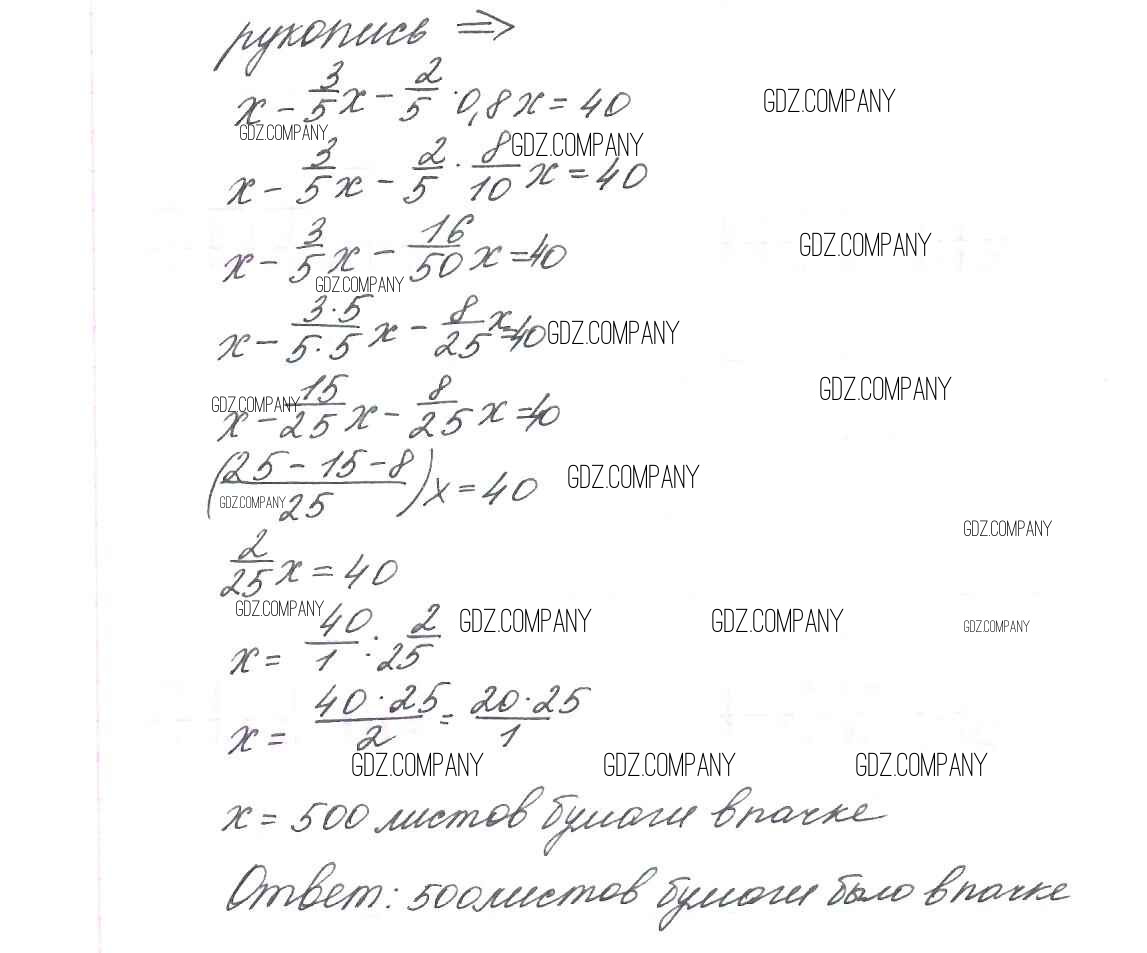 рукопись ⇒
x - 3/5 x - 2/5 · 0,8 x = 40
GDZ.COMPANY
GDZ.COMPANY
x - 3/5 x - 2/5 · 8/10 x = 40
GDZ.COMPANY
x - 3/5 x - 16/50 x = 40
GDZ.COMPANY
GDZ.COMPANY
x - 3·5/5·5 x - 8/25 x = 40
GDZ.COMPANY
GDZ.COMPANY
x - 15/25 x - 8/25 x = 40
GDZ.COMPANY
(25 - 15 - 8/25) x = 40
GDZ.COMPANY
GDZ.COMPANY
GDZ.COMPANY
2/25 x = 40
GDZ.COMPANY
x = 40/1 : 2/25
GDZ.COMPANY
GDZ.COMPANY
GDZ.COMPANY
x = 40·25/2 = 20·25/1
GDZ.COMPANY
GDZ.COMPANY
GDZ.COMPANY
x = 500 листов бумаги в пачке
Ответ: 500 листов бумаги было в пачке